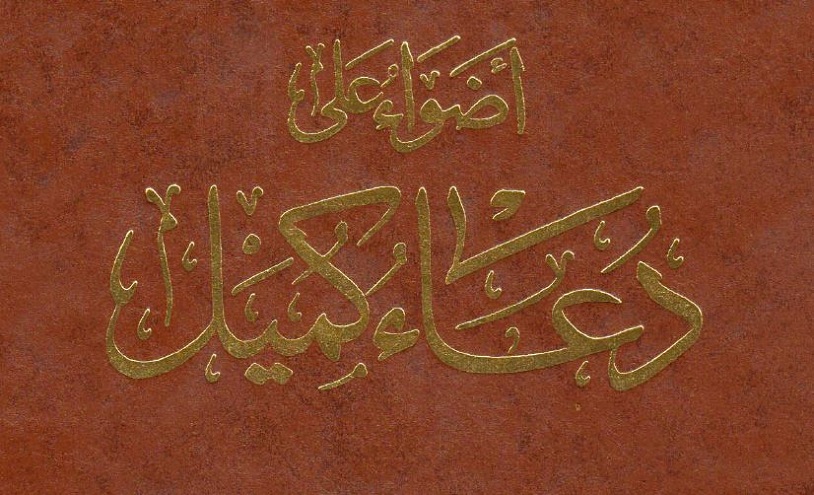 أضواء على
دعاء كميل